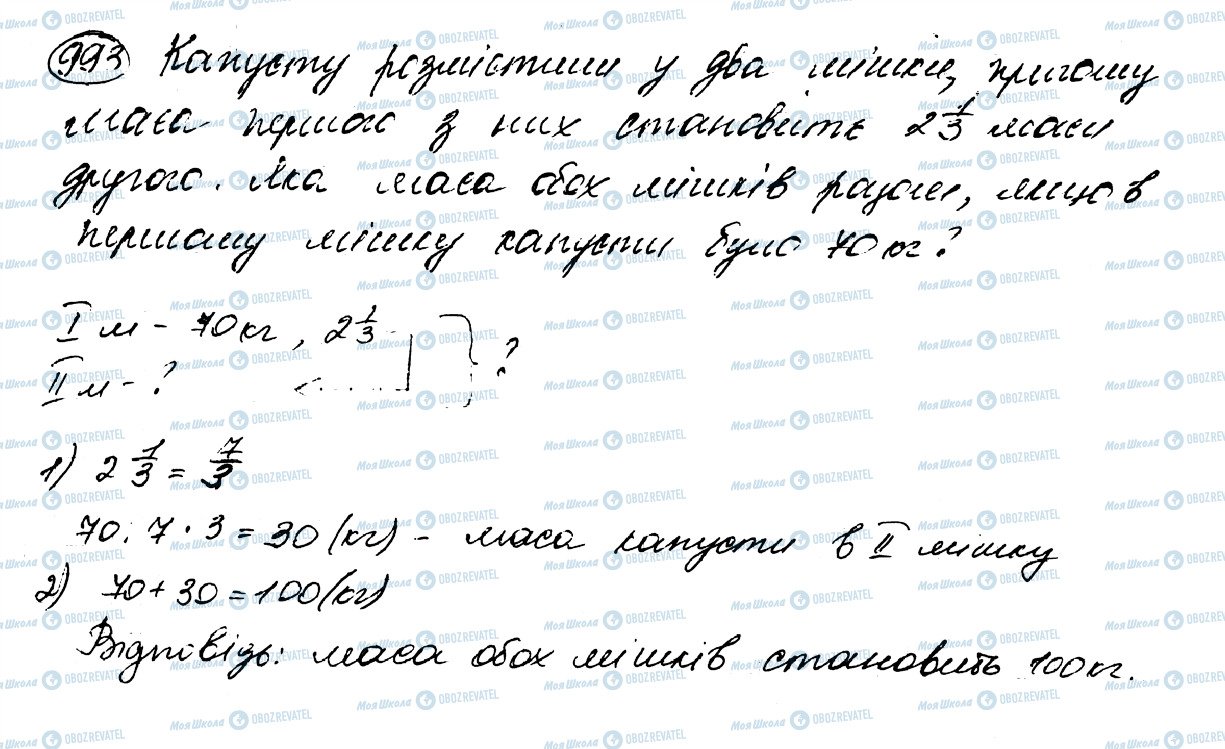 993 Капусту розмістили у два мішки, причому
маса першого з них становить 2 1/3 маси
другого. Яка маса обох мішків разом, якщо в
першому мішку капусти було 70 кг?
I м - 70 кг, 2 1/3
II м - ?
?
1) 2 1/3 = 7/3
70 : 7 · 3 = 30 (кг) - маса капусти в II мішку
2) 70 + 30 = 100 (кг)
Відповідь: маса обох мішків становить 100 кг.
Моя Школа OBOZREVATEL